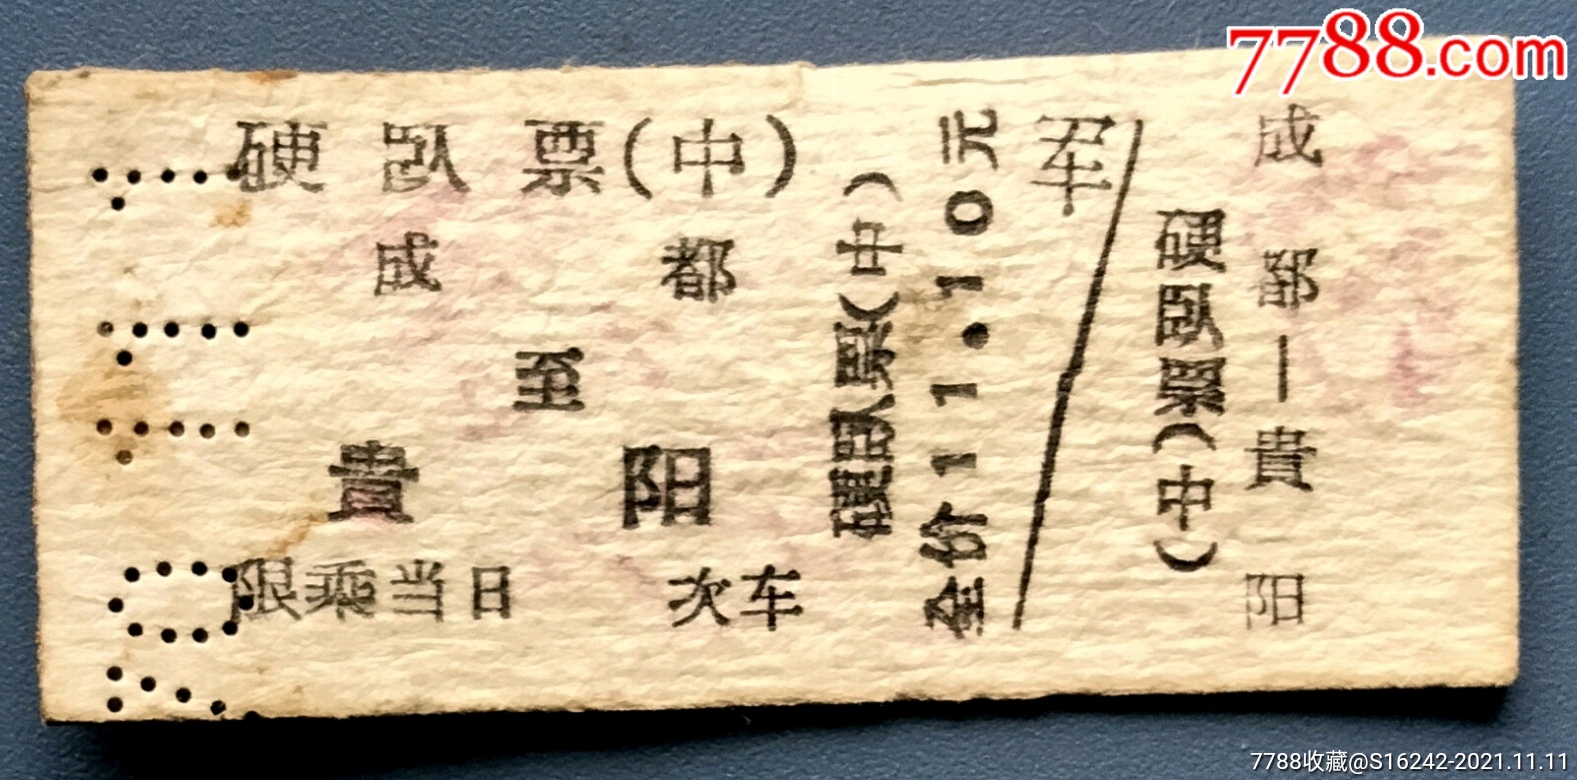 7788.com
硬卧票(中)
成都
至
貴阳
限乘当日 次车
硬卧票(中)
全价11.10元
军
硬卧票(中)
成都—貴阳
7788收藏@S16242-2021.11.11